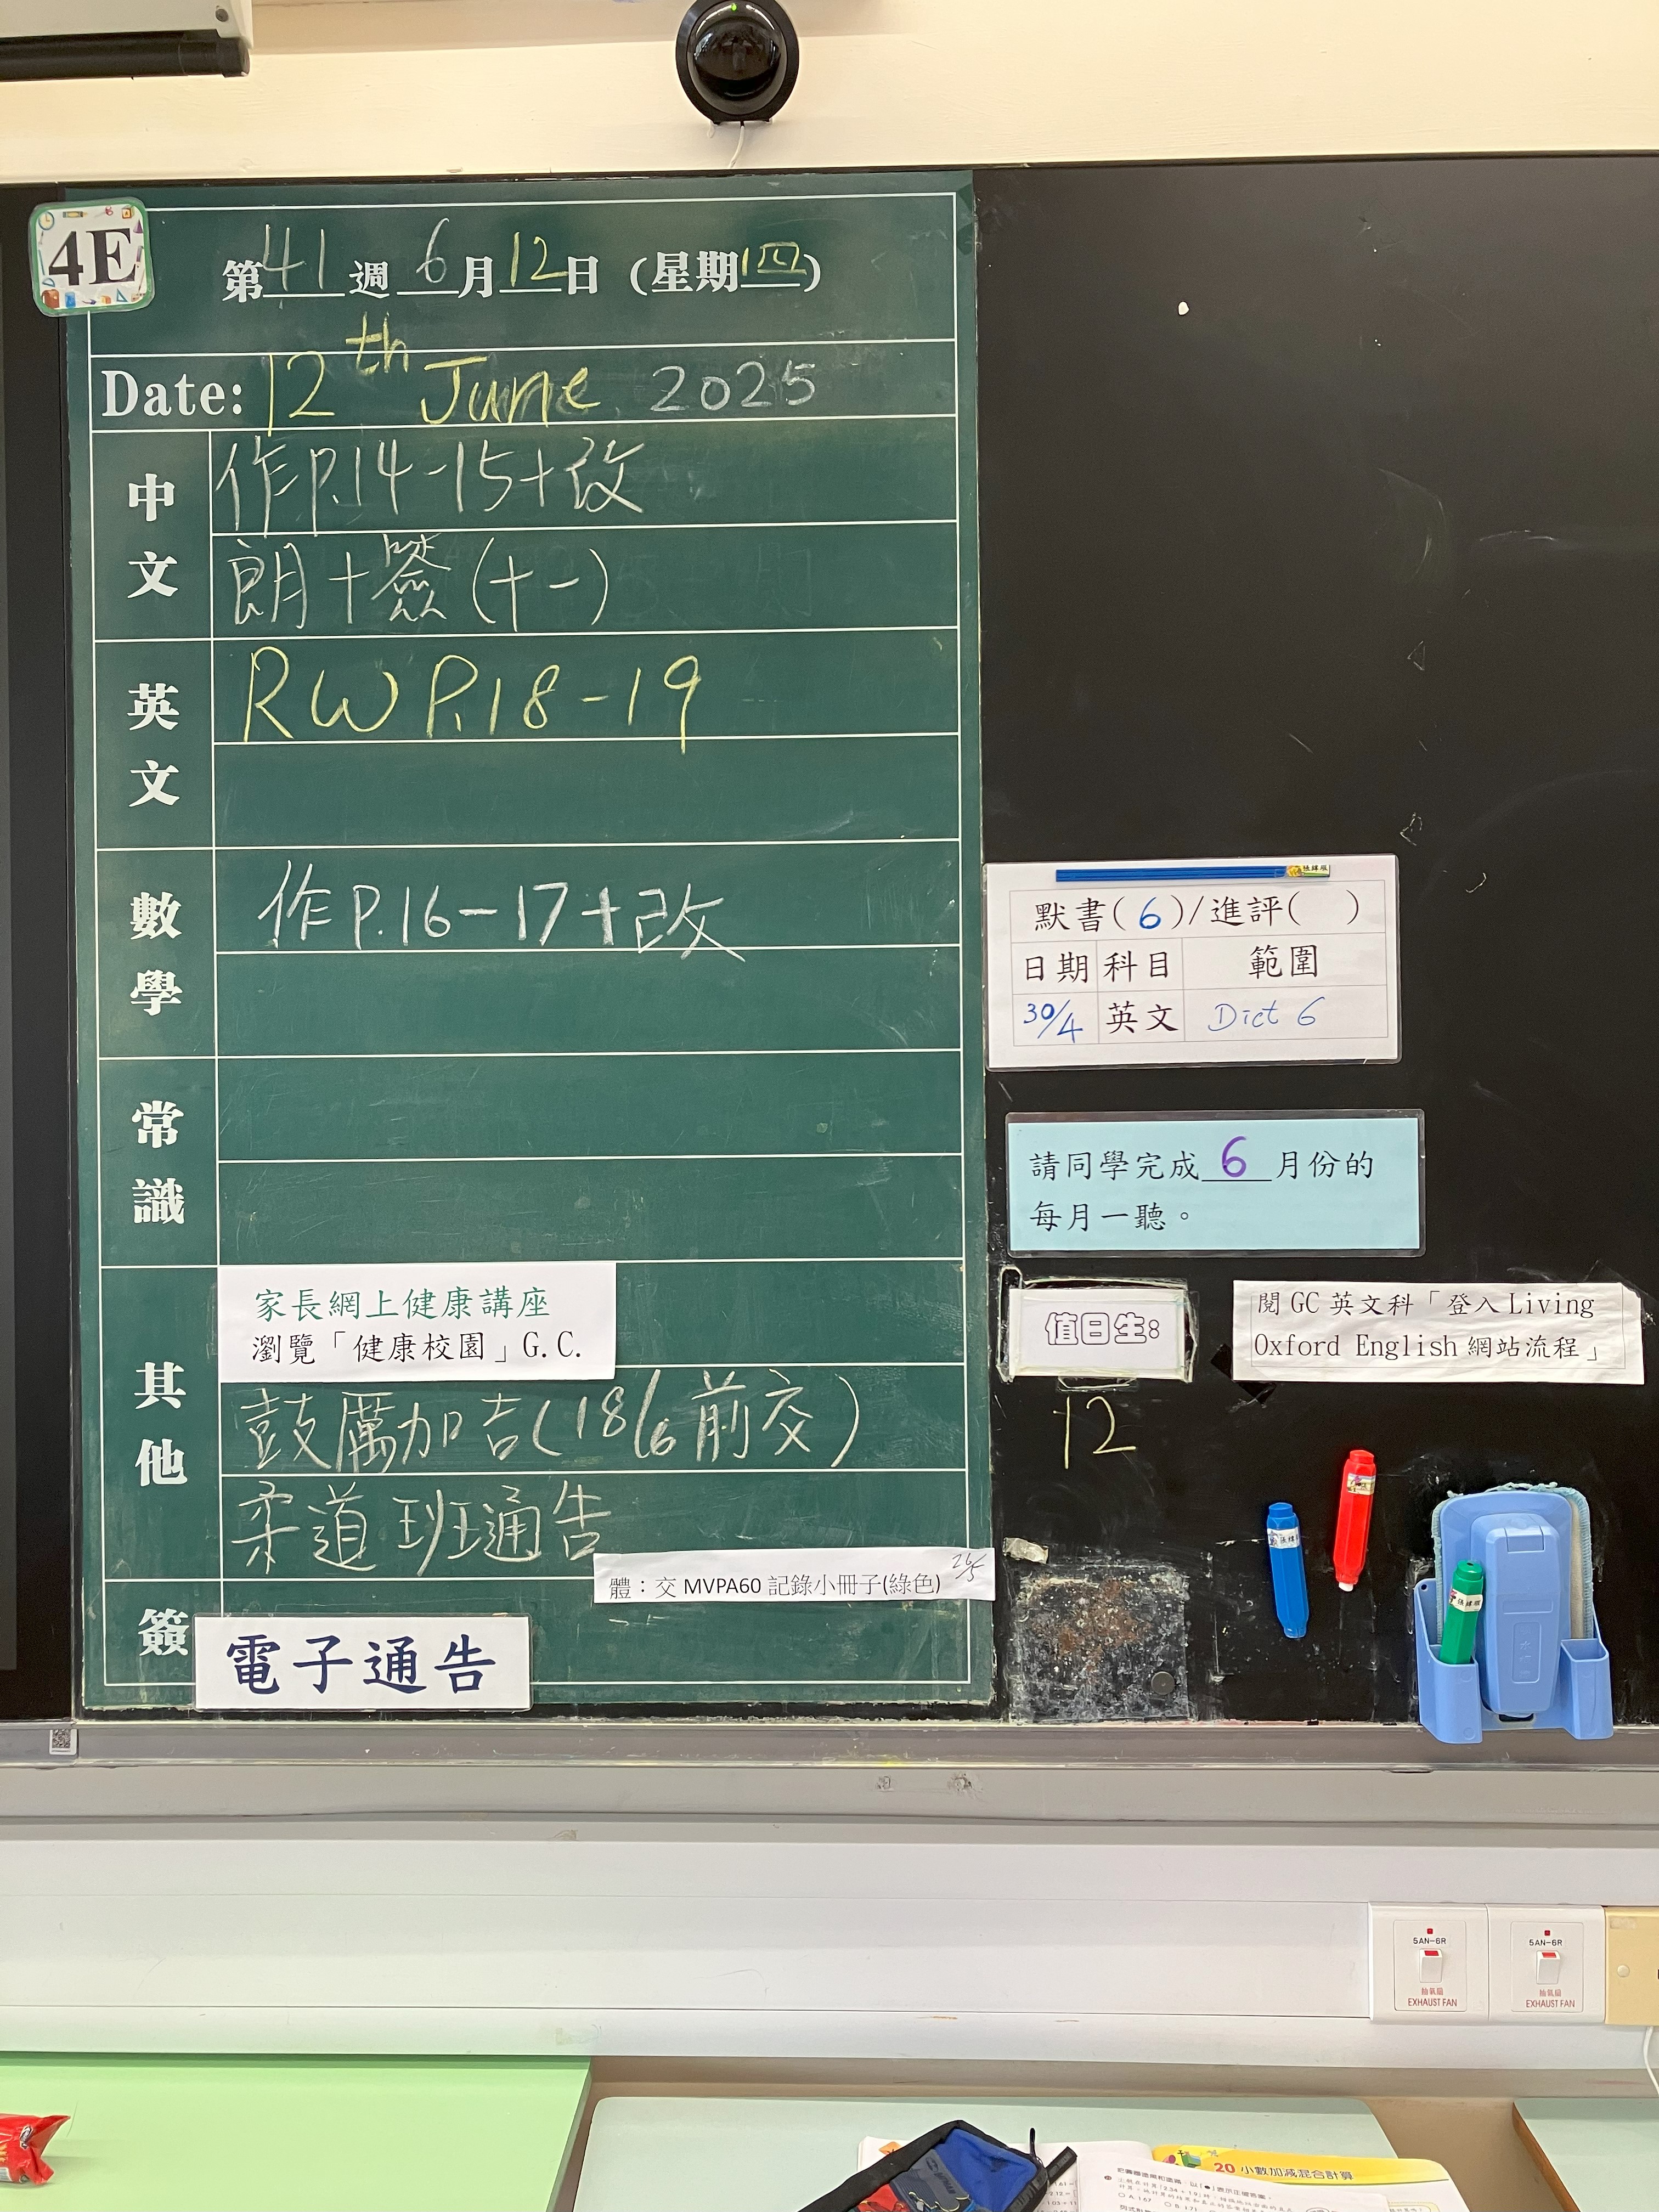 4E
第41週 6月12日 (星期四)
Date: 12th June 2025
中文
作P.14-15+改
朗+簽(十一)
英文
RW P.18-19
數學
作P.16-17+改
常識
其他
家長網上健康講座
瀏覽「健康校園」G.C.
鼓厲加吉(18/6前交)
柔道班通告
體：交 MVPA60 記錄小冊子(綠色) 26/5
簽
電子通告
默書(6)/進評( )
日期 科目 範圍
30/4 英文 Dict 6
請同學完成 6 月份的
每月一聽。
值日生:
12
閱 GC 英文科「登入 Living
Oxford English 網站流程」
5AN-6R
抽氣扇
EXHAUST FAN
5AN-6R
抽氣扇
EXHAUST FAN
20 小數加減混合計算